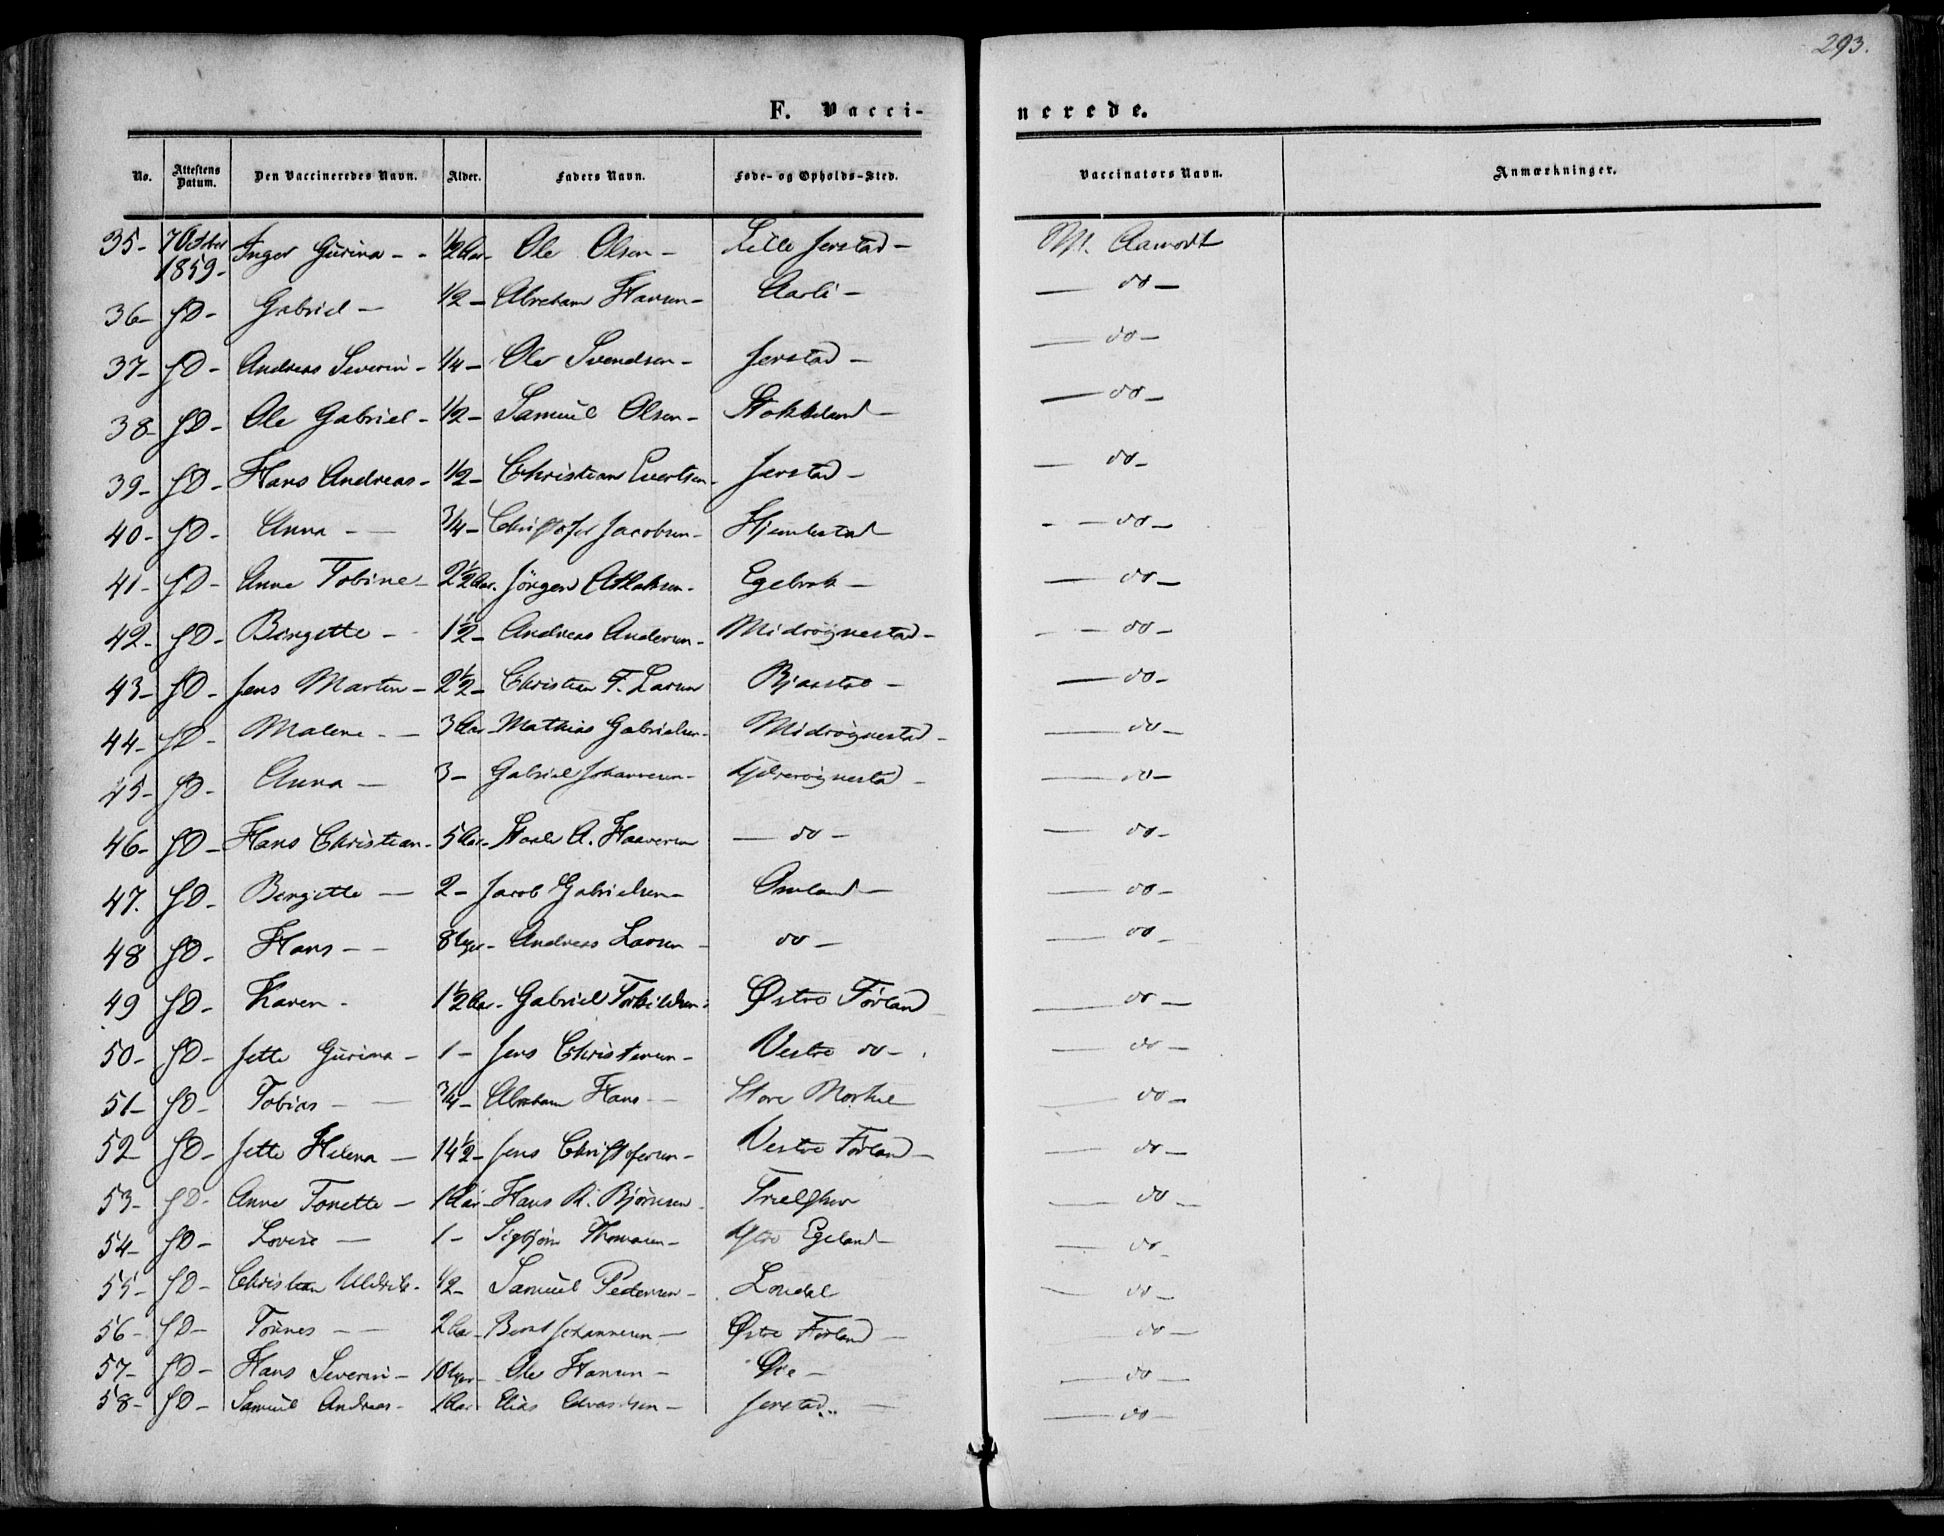 293.
F. Vaccinerede.
No. Attestens Datum. Den Vaccineredes Navn. Alder. Faders Navn. Føde- og Opholds-Sted. Vaccinators Navn. Anmærkninger.
35- 7 October 1859- Inger Gurina - - 1/2 Aar- Ole Olsen - Lille Jerstad - M. Aamodt
36- sD- Gabriel - 1/2 - Abraham Hansen - Aarli - — do —
37- sD- Andreas Severin - 1/4 - Ole Svendsen - Jerstad - — do —
38- sD- Ole Gabriel - 1/2 - Samuel Olsen - Stokkeland - — do —
39- sD- Hans Andreas - 1/2 - Christian Evertsen - Jerstad - — do —
40- sD- Anna - - 3/4 - Christofer Jacobsen - Hjembestad - — do —
41- sD- Anne Tobine - 2 1/2 Aar. Jörgen - Egebak - — do —
42- sD- Birgitte - 1 1/2 - Andreas Andersen - Midrøgnestad - — do —
43- sD- Jens Martin - 2 1/2 - Christian F. Larsen - — do —
44- sD- Malene - - 3 Aar - Mathias Gabrielsen - Midrøgnestad - — do —
45- sD- Anna - 3 - Gabriel Johannesen - — do —
46- sD- Hans Christian - 5 Aar - Staale A. Haaversen — do — — do —
47. sD- Birgitte - 2 - Jacob Gabrielsen - Omland - — do —
48 sD- Hans - - 8 Uger - Andreas Larsen - do - — do —
49 sD- Karen - 1 1/2 Aar - Gabriel Torkildsen - Østre Førland - — do —
50- sD- Jette Gurina - 1 - Jens Christensen - Vestre do - — do —
51- sD- Tobias - - 3/4 - Abraham Hans - Store — do —
52 sD- Jette Helena - 14 1/2 - Jens Christofersen - Vestre Førland - — do —
53- sD- Anne Tonette - 1 Aar - Hans R. Bjørnsen - — do —
54- sD- Lovise - 1 - Sigbjørn Thomasen - Egeland - — do —
55- sD- Christian Uldrik - 1/2 - Samuel Pedersen - Londal — do —
56- sD- Tønnes - - 2 Aar - Bent Johannesen - Østre Førland - — do —
57- sD- Hans Severin - 10 Uger - Ole Hansen - Øie - — do —
58- sD- Samuel Andreas - 1 Aar Elias Edvardsen - Jerstad - — do —